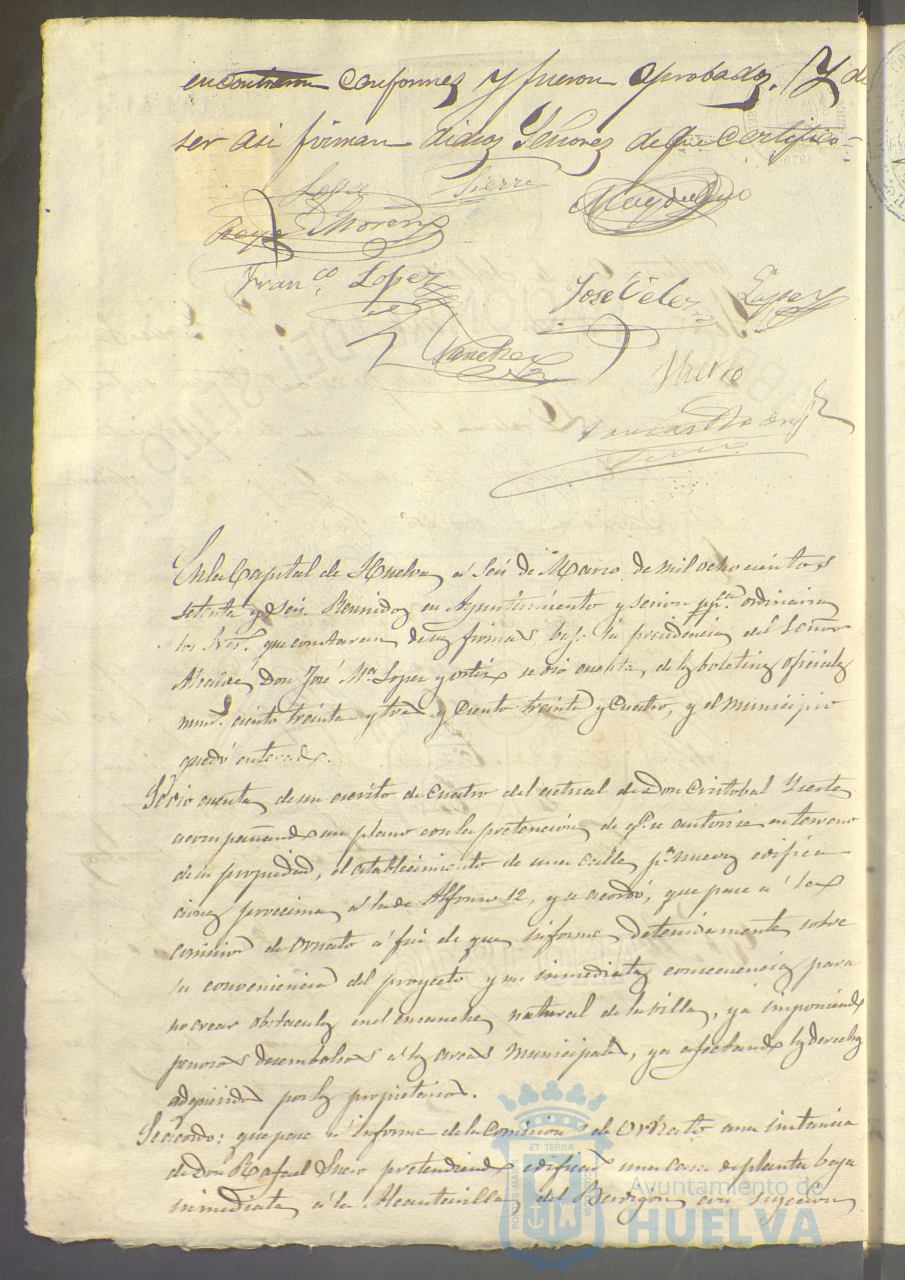 encontraron conformes y fueron aprobados. Y de
ser asi firman dichos Señores de que certifico=
Lopez Sierra
Moreno
Franco Lopez
Jose Velez Lopez
Sanchez
En la Capital de Huelva á seis de Marzo de mil ochocientos
setenta y seis. Reunidos en Ayuntamiento y sesion ppca ordinaria
los Sres. que constaran de sus firmas bajo la presidencia del Señor
Alcalde Don José Ma Lopez y Ortiz se dió cuenta de los boletines oficiales
nums. ciento treinta y tres y ciento treinta y cuatro, y el Municipio
quedó enterado.
Se dio cuenta de un escrito de cuatro del actual de Don Cristobal
acompañando un plano con la pretencion de qe se autorice en terreno
de su propiedad, el establecimiento de una calle pa nuevas edifica
ciones procsima á la de Alfonso 12, y se acordó, que pase á la
comision de ornato á fin de que informe detenidamente sobre
la conveniencia del proyecto y sus inmediatas consecuencias para
no crear obstaculos en el ensanche natural de la villa, ya imponiendo
penosos desembolsos á las arcas Municipales, ya afectando los derechos
adquiridos por los propietarios.
Se acordó: que pase á informe de la Comision de Ornato una instancia
de Don Rafael pretendiendo edificar una casa de planta baja
inmediata á la Alcantarilla del Berdigon con sujecion
Ayuntamiento de
HUELVA